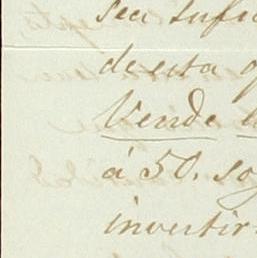 sea sufi
de esta
Vende
á 50. so
invertir